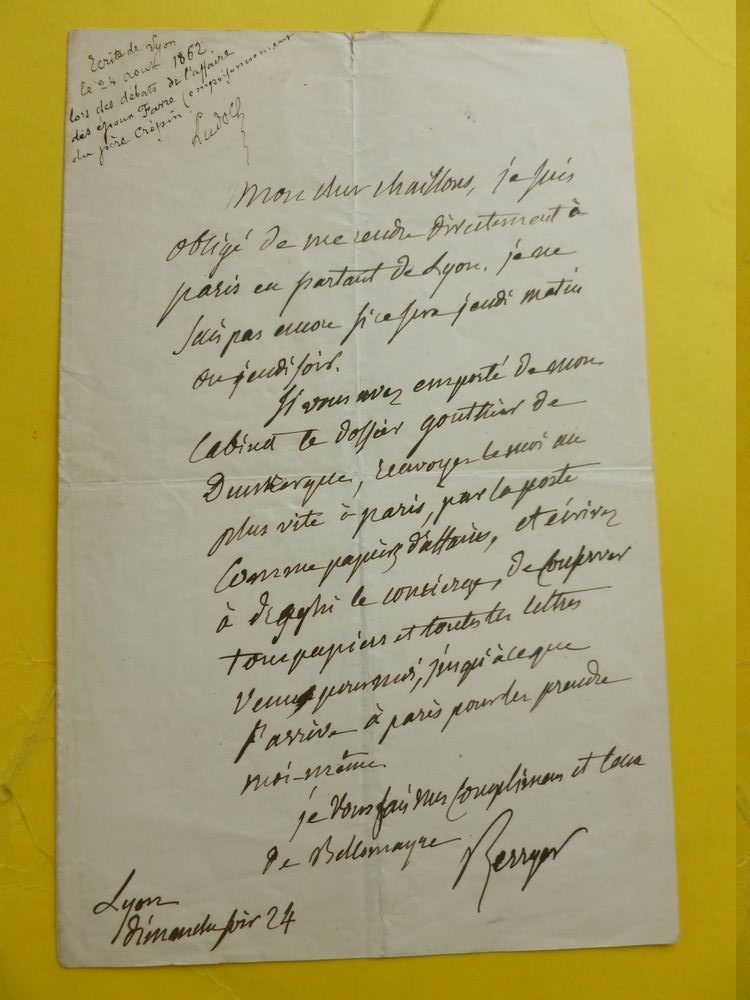 Ecrite de Lyon
le 24 août 1862
lors des débats de l'affaire
des époux Farre (emprisonnement
du père Crépin
Mon cher chaillons, je suis
obligé de me rendre directement à
paris en partant de Lyon. je ne
sais pas encore si ce sera jeudi matin
ou jeudi soir.
Si vous avez emporté de mon
Cabinet le dossier gouthier de
Dunkerque, renvoyez le moi au
plus vite à paris, par la poste
Comme papiers d'affaires, et écrivez
à le concierge, de conserver
tous papiers et toutes les lettres
venus pour moi, jusqu'à ce que
j'arrive à paris pour les prendre
moi-même.
je vous fais mes complimens et ceux
de Bellomayre
Berryer
Lyon
dimanche soir 24